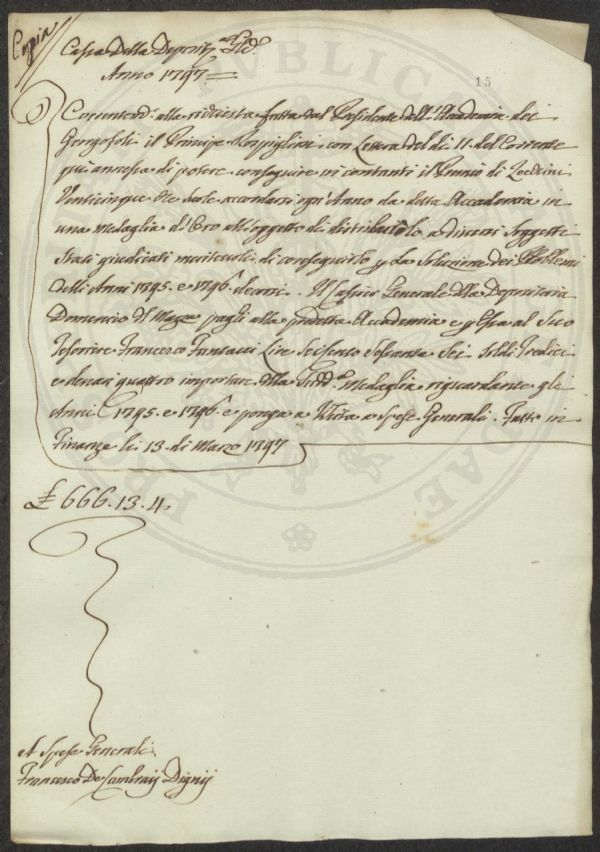 Coppia
Cassa Della Deposit.ria Gle.
Anno 1797
15
Coerentem. alla richiesta fatta dal Presidente dell'Accademia dei
Georgofili il Principe Rospigliosi con Lettera del dì 11. del Corrente
quì annessa di potere conseguire in contanti il Premio di Zecchini
Venticinque che suole accordarsi ogn'Anno da detta Accademia in
una Medaglia d'Oro all'oggetto di distribuirlo a diversi Soggetti
stati giudicati meritevoli di conseguirlo p la Soluzione dei Problemi
degli Anni 1795. e 1796. decorsi. Il Cassier Generale della Depositeria
Domenico Del Mazza paghi alla predetta Accademia e p Essa al Suo
Tesoriere Francesco Lire Seicento Sessanta Sei Soldi Tredici
e denari quattro importare della Sudd.a Medaglia riguardante gli
Anni 1795. e 1796. e ponga a Uscita a Spese Generali. Fatto in
Finanze li 13. di Marzo 1797
£ 666.13.4.
A Spese Generali
Francesco De Cambraij Dignij